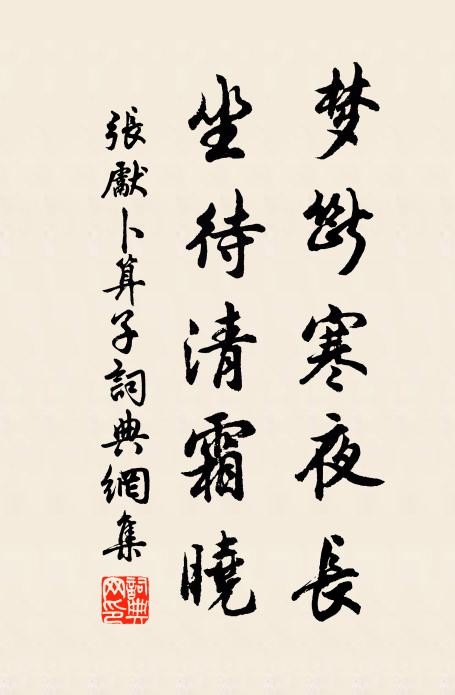 梦斷寒夜長
坐待清霜曉
張獻卜算子詞典網集
詞典网印